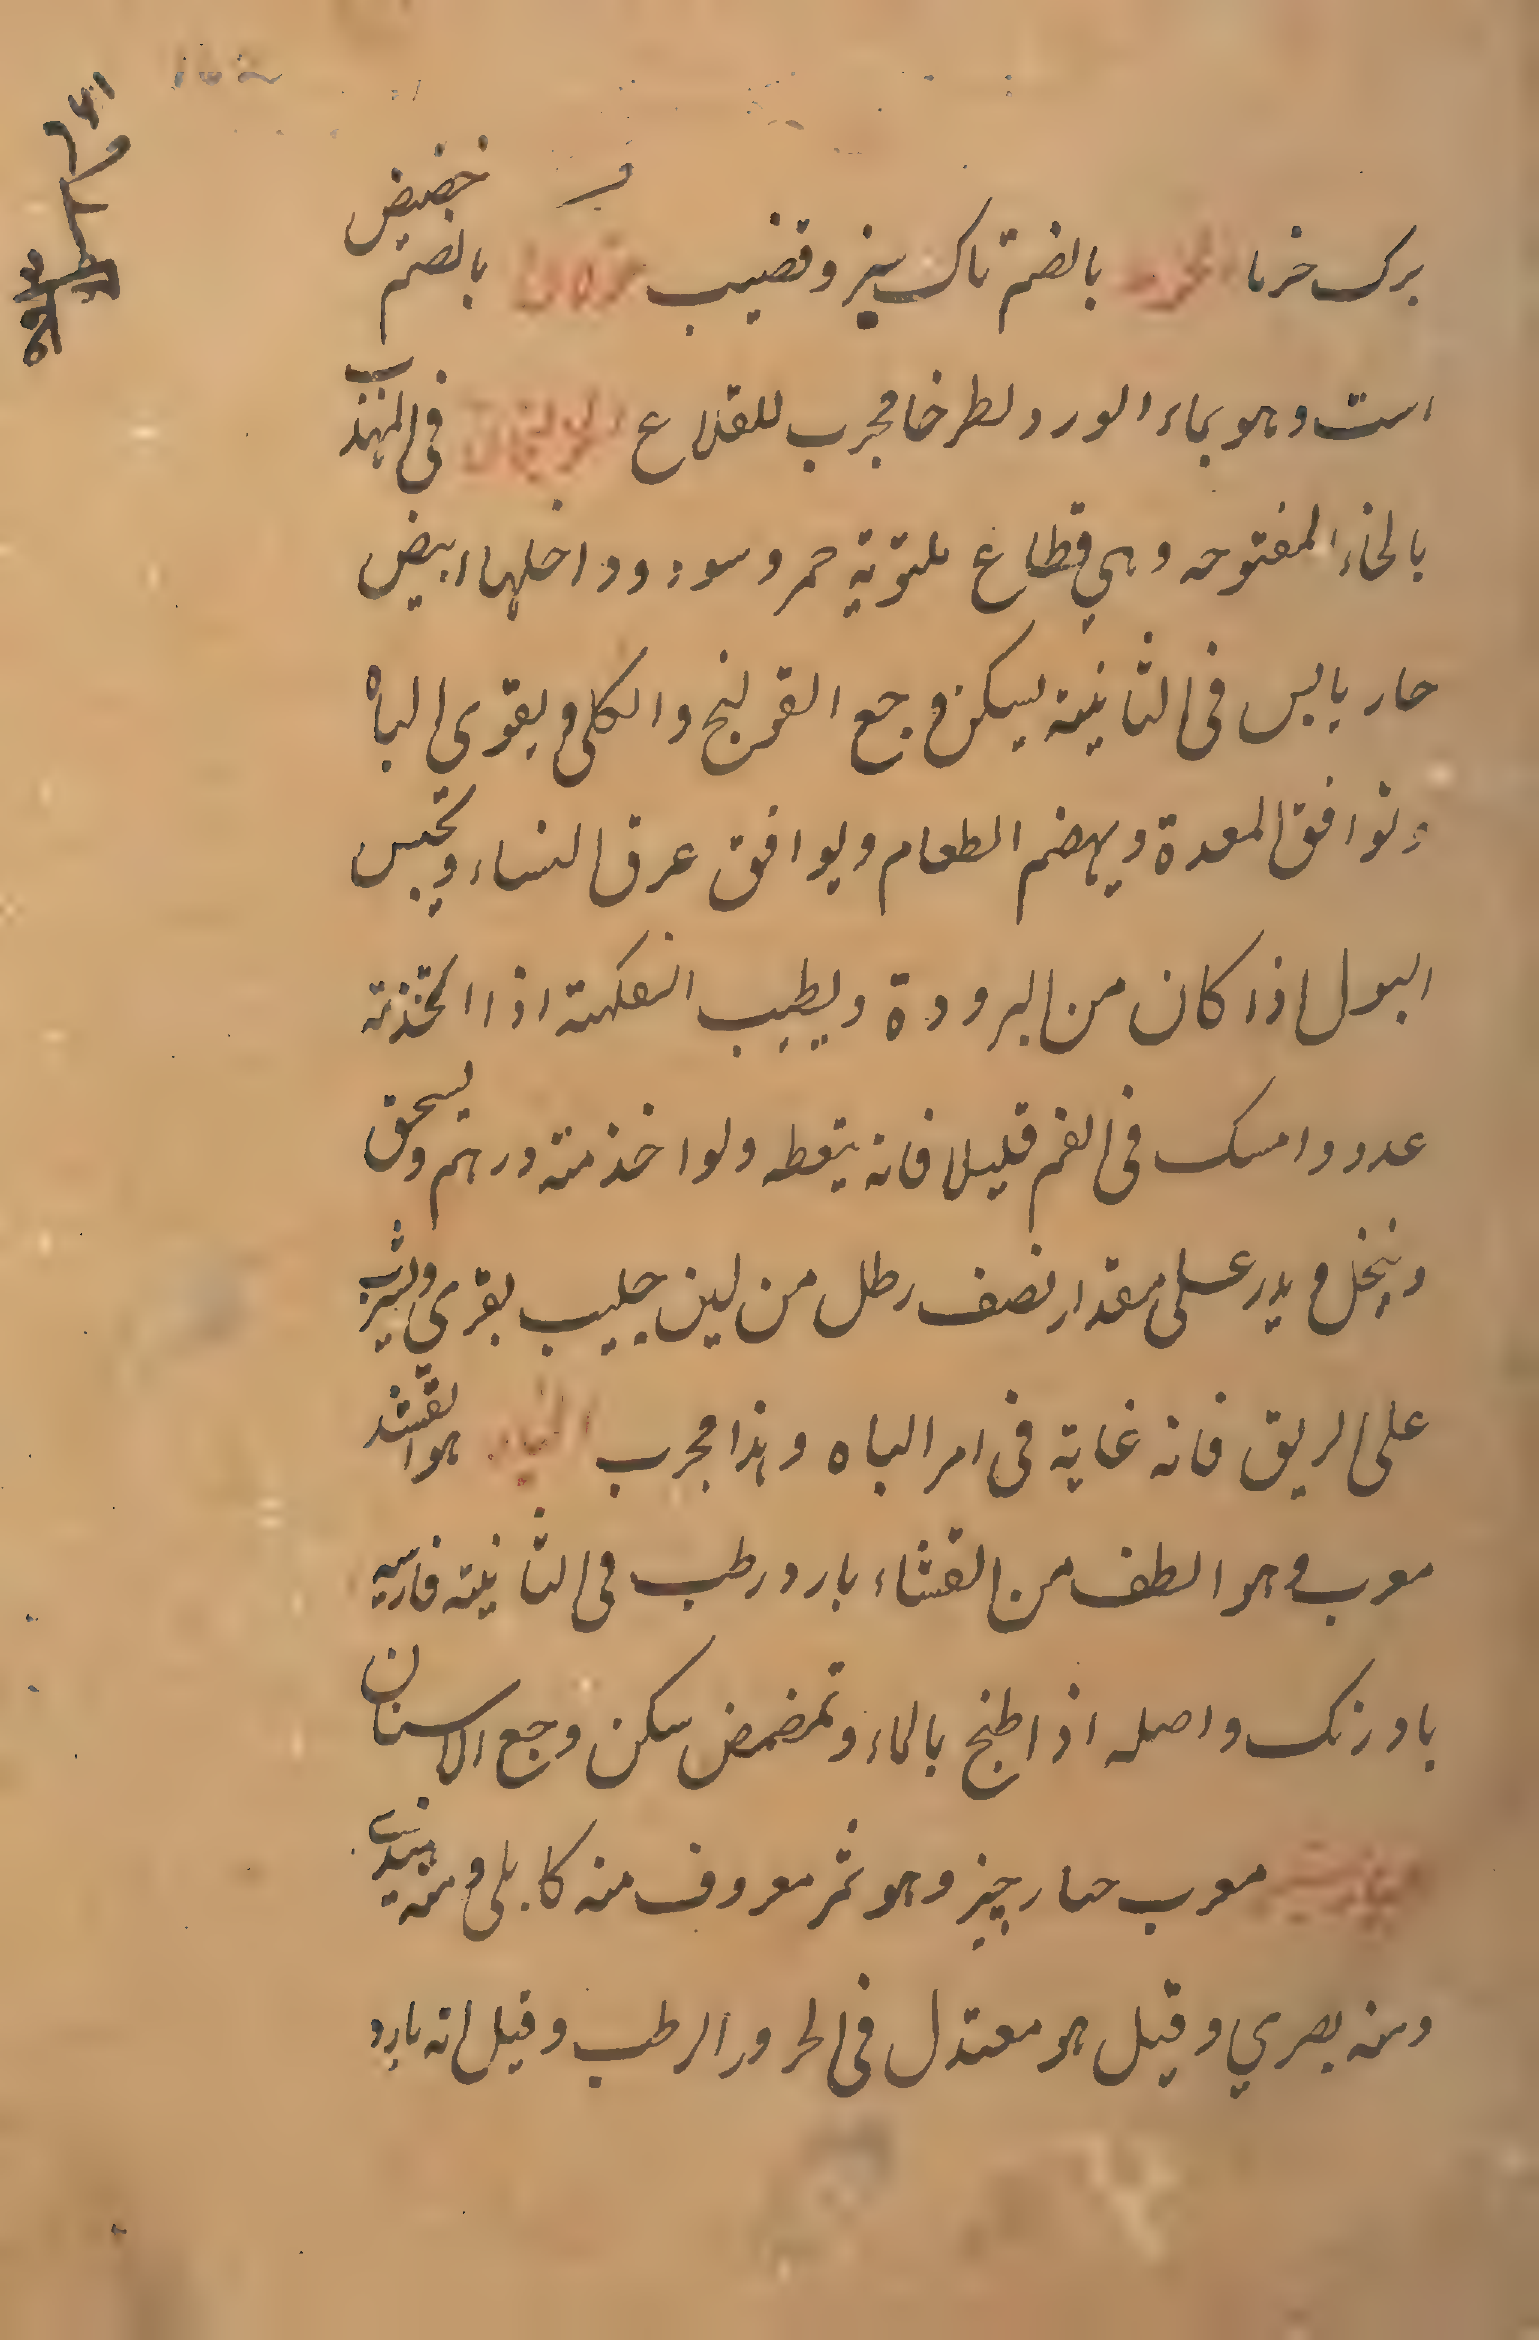 برک خرما بالضم تاک سبز و قضیب بالضم خضیض
است و هو بماء الورد لطرخا مجرب للقلاع الخولنجان فی المهذب
بالخاء المفتوحه و هی قطاع ملتویة حمر و سود و داخلها ابیض
حار یابس فی الثانیة یسکن وجع القولنج والکلی و یقوی الباه
و توافق المعدة و یهضم الطعام و یوافق عرق النساء و یحبس
البول اذا کان من البرودة و یطیب النکهة اذا اتخذته
عدد و امسک فی الفم قلیلا فانه ینعطه ولو اخذ منه درهم و یسحق
و ینخل و یدر علی مقدار نصف رطل من لبن حلیب بقری و یشرب
علی الریق فانه غایة فی امر الباه و هذا مجرب الخیار هو القشد
معرب و هو الطف من القشاء بارد رطب فی الثانیة فارسیه
باورنک و اصله اذا طبخ بالماء و تمضمض سکن وجع الاسنان
معرب خیار چنبر و هو ثمر معروف منه کابلی و منه هندی
و منه بصری و قیل هو معتدل فی الحر و الرطب و قیل انه بارد